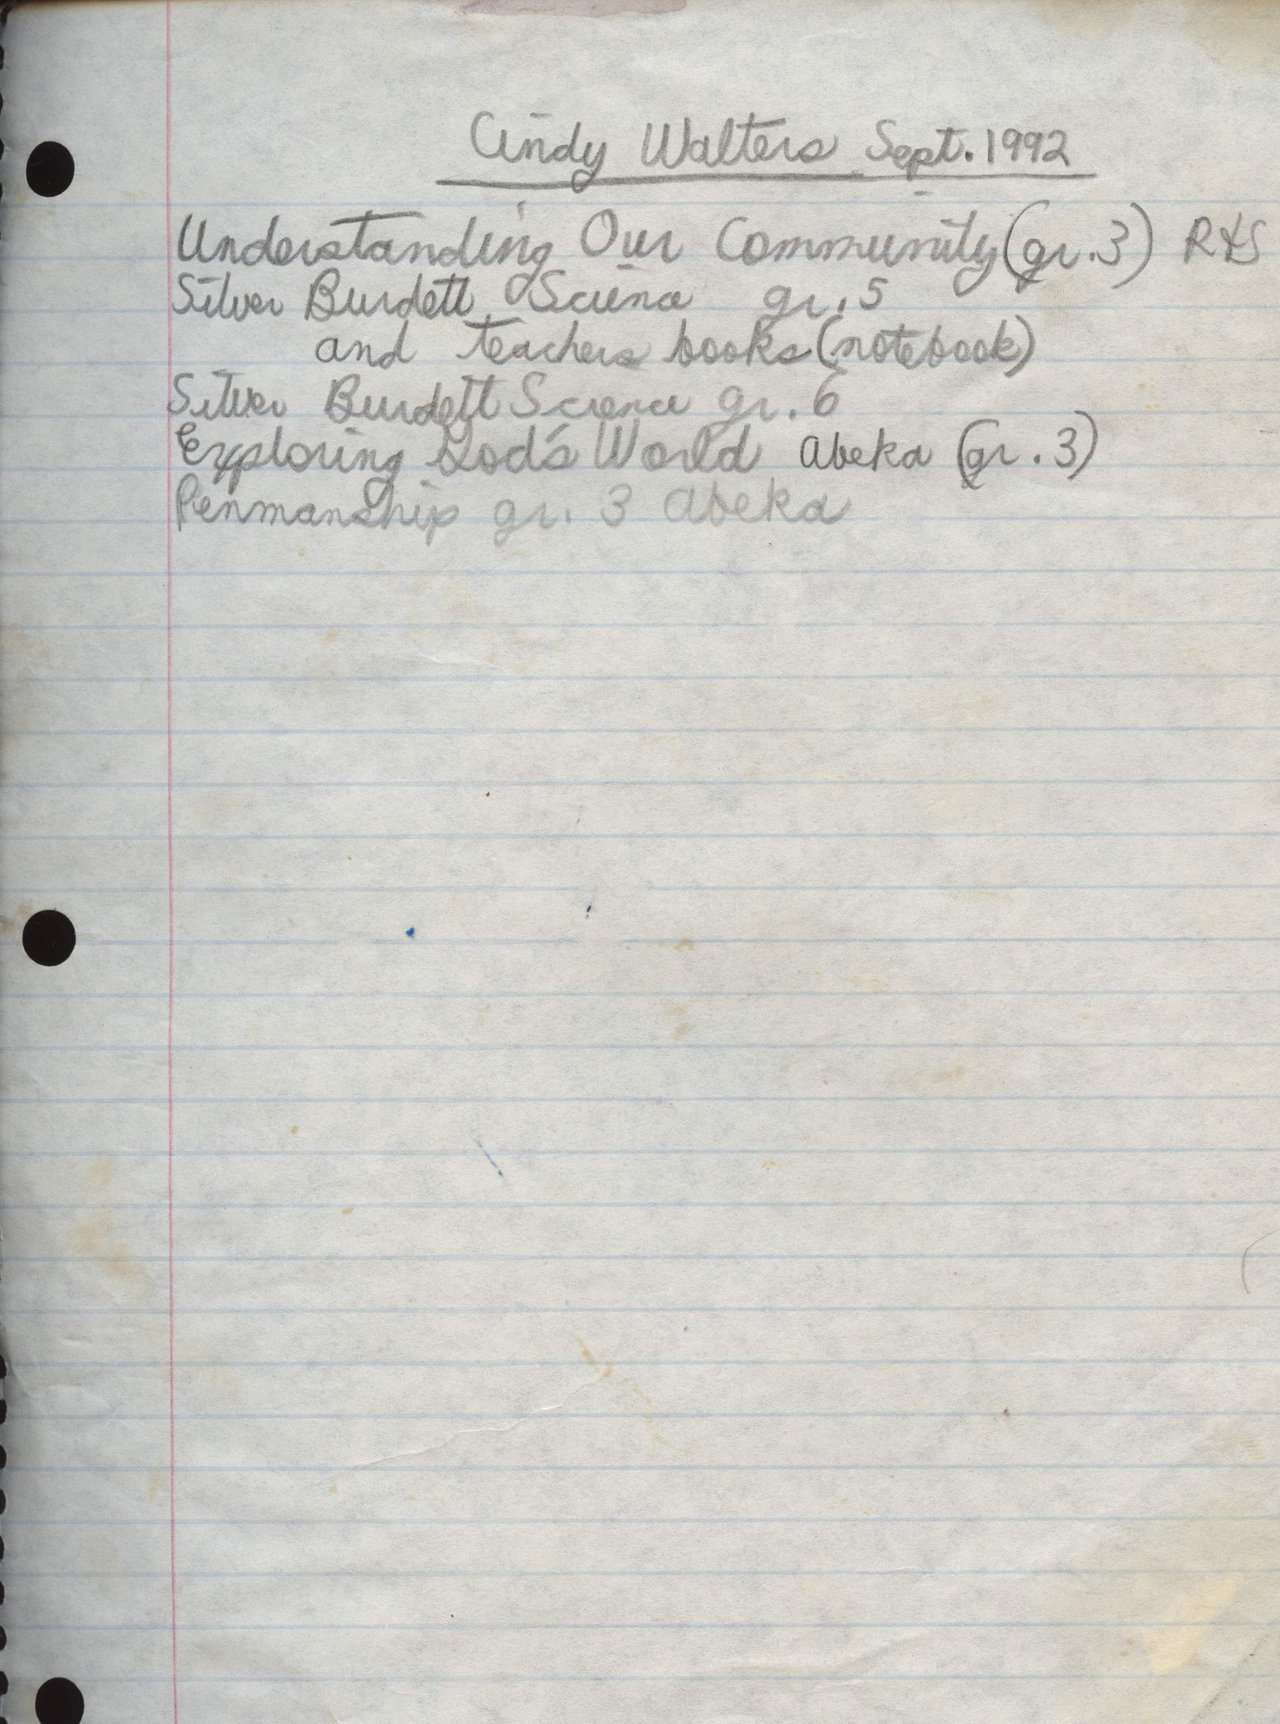 Cindy Walters Sept. 1992
Understanding Our Community (gr. 3) R&S
Silver Burdett Science gr. 5
and teachers books (notebook)
Silver Burdett Science gr. 6
Exploring God's World Abeka (gr. 3)
Penmanship gr. 3 Abeka